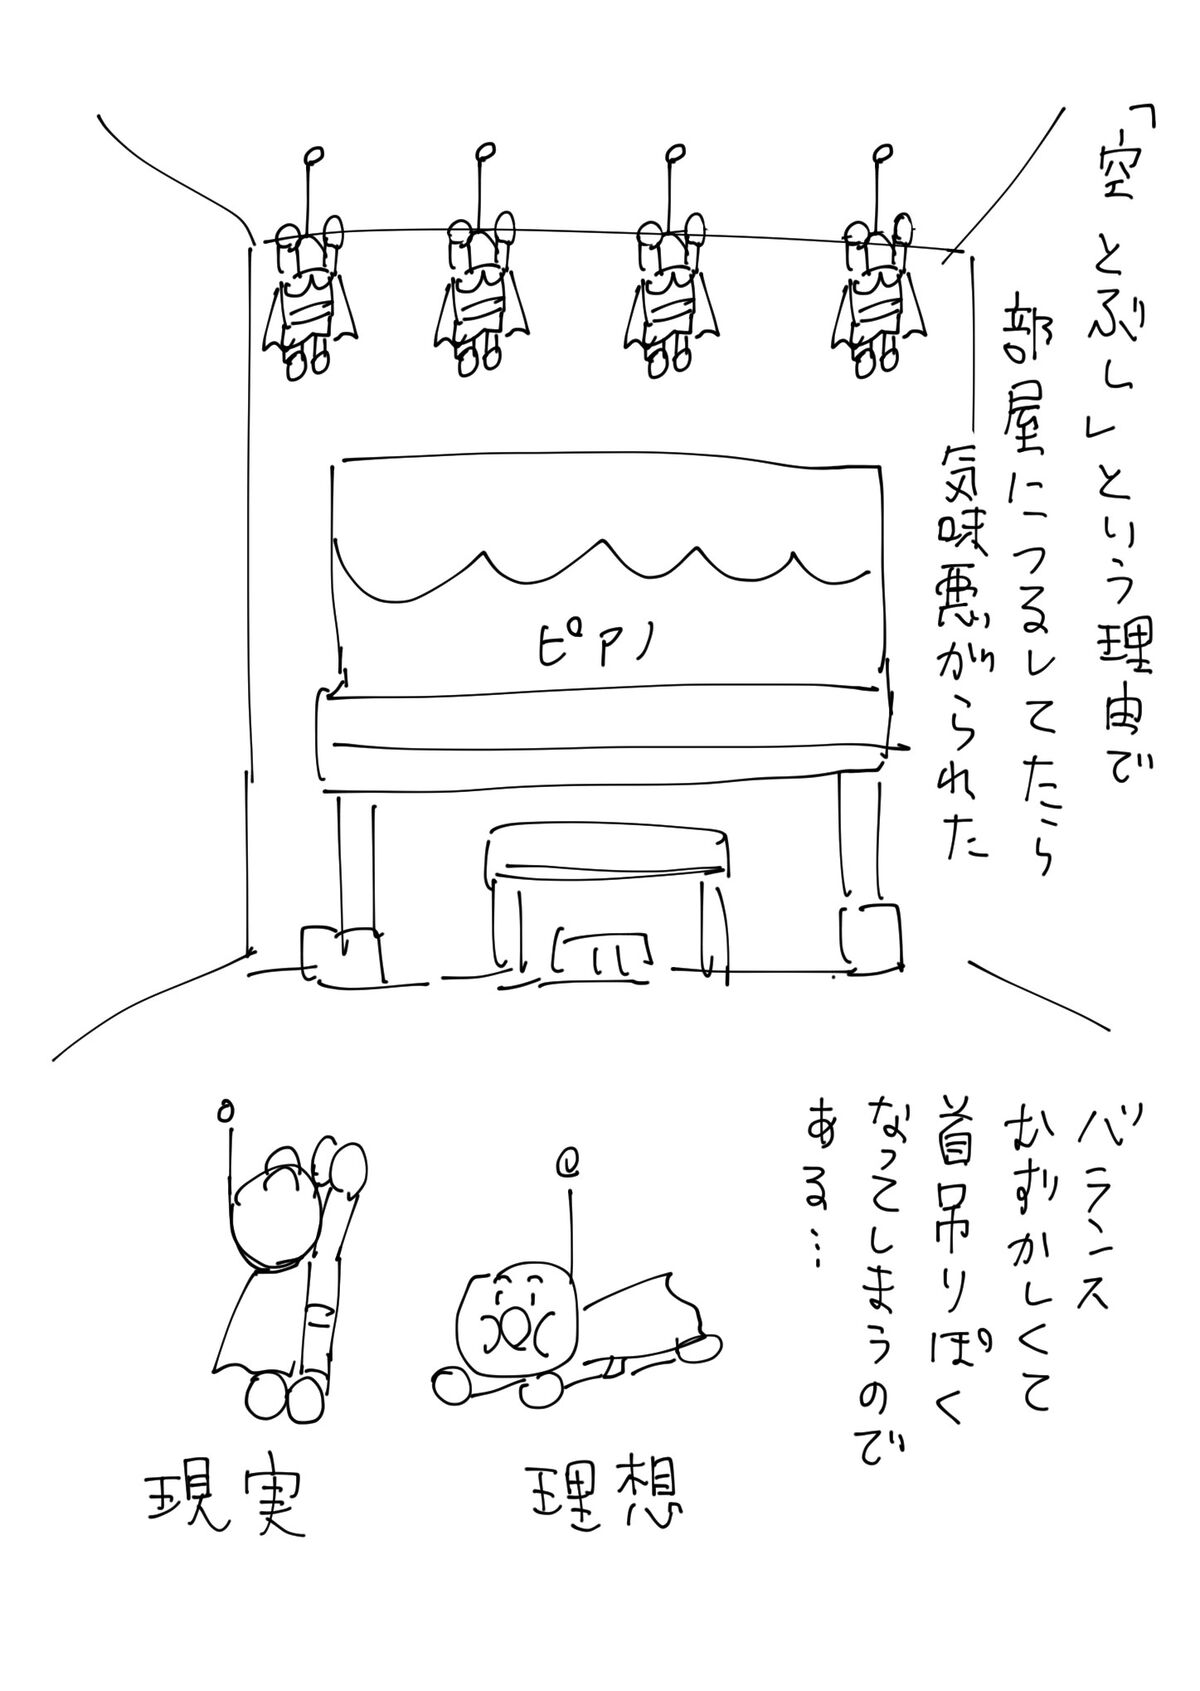 「空とぶし」という理由で
部屋につるしてたら
気味悪がられた
ピアノ
バランス
むずかしくて
首吊りぽく
なってしまうので
ある…
理想
現実